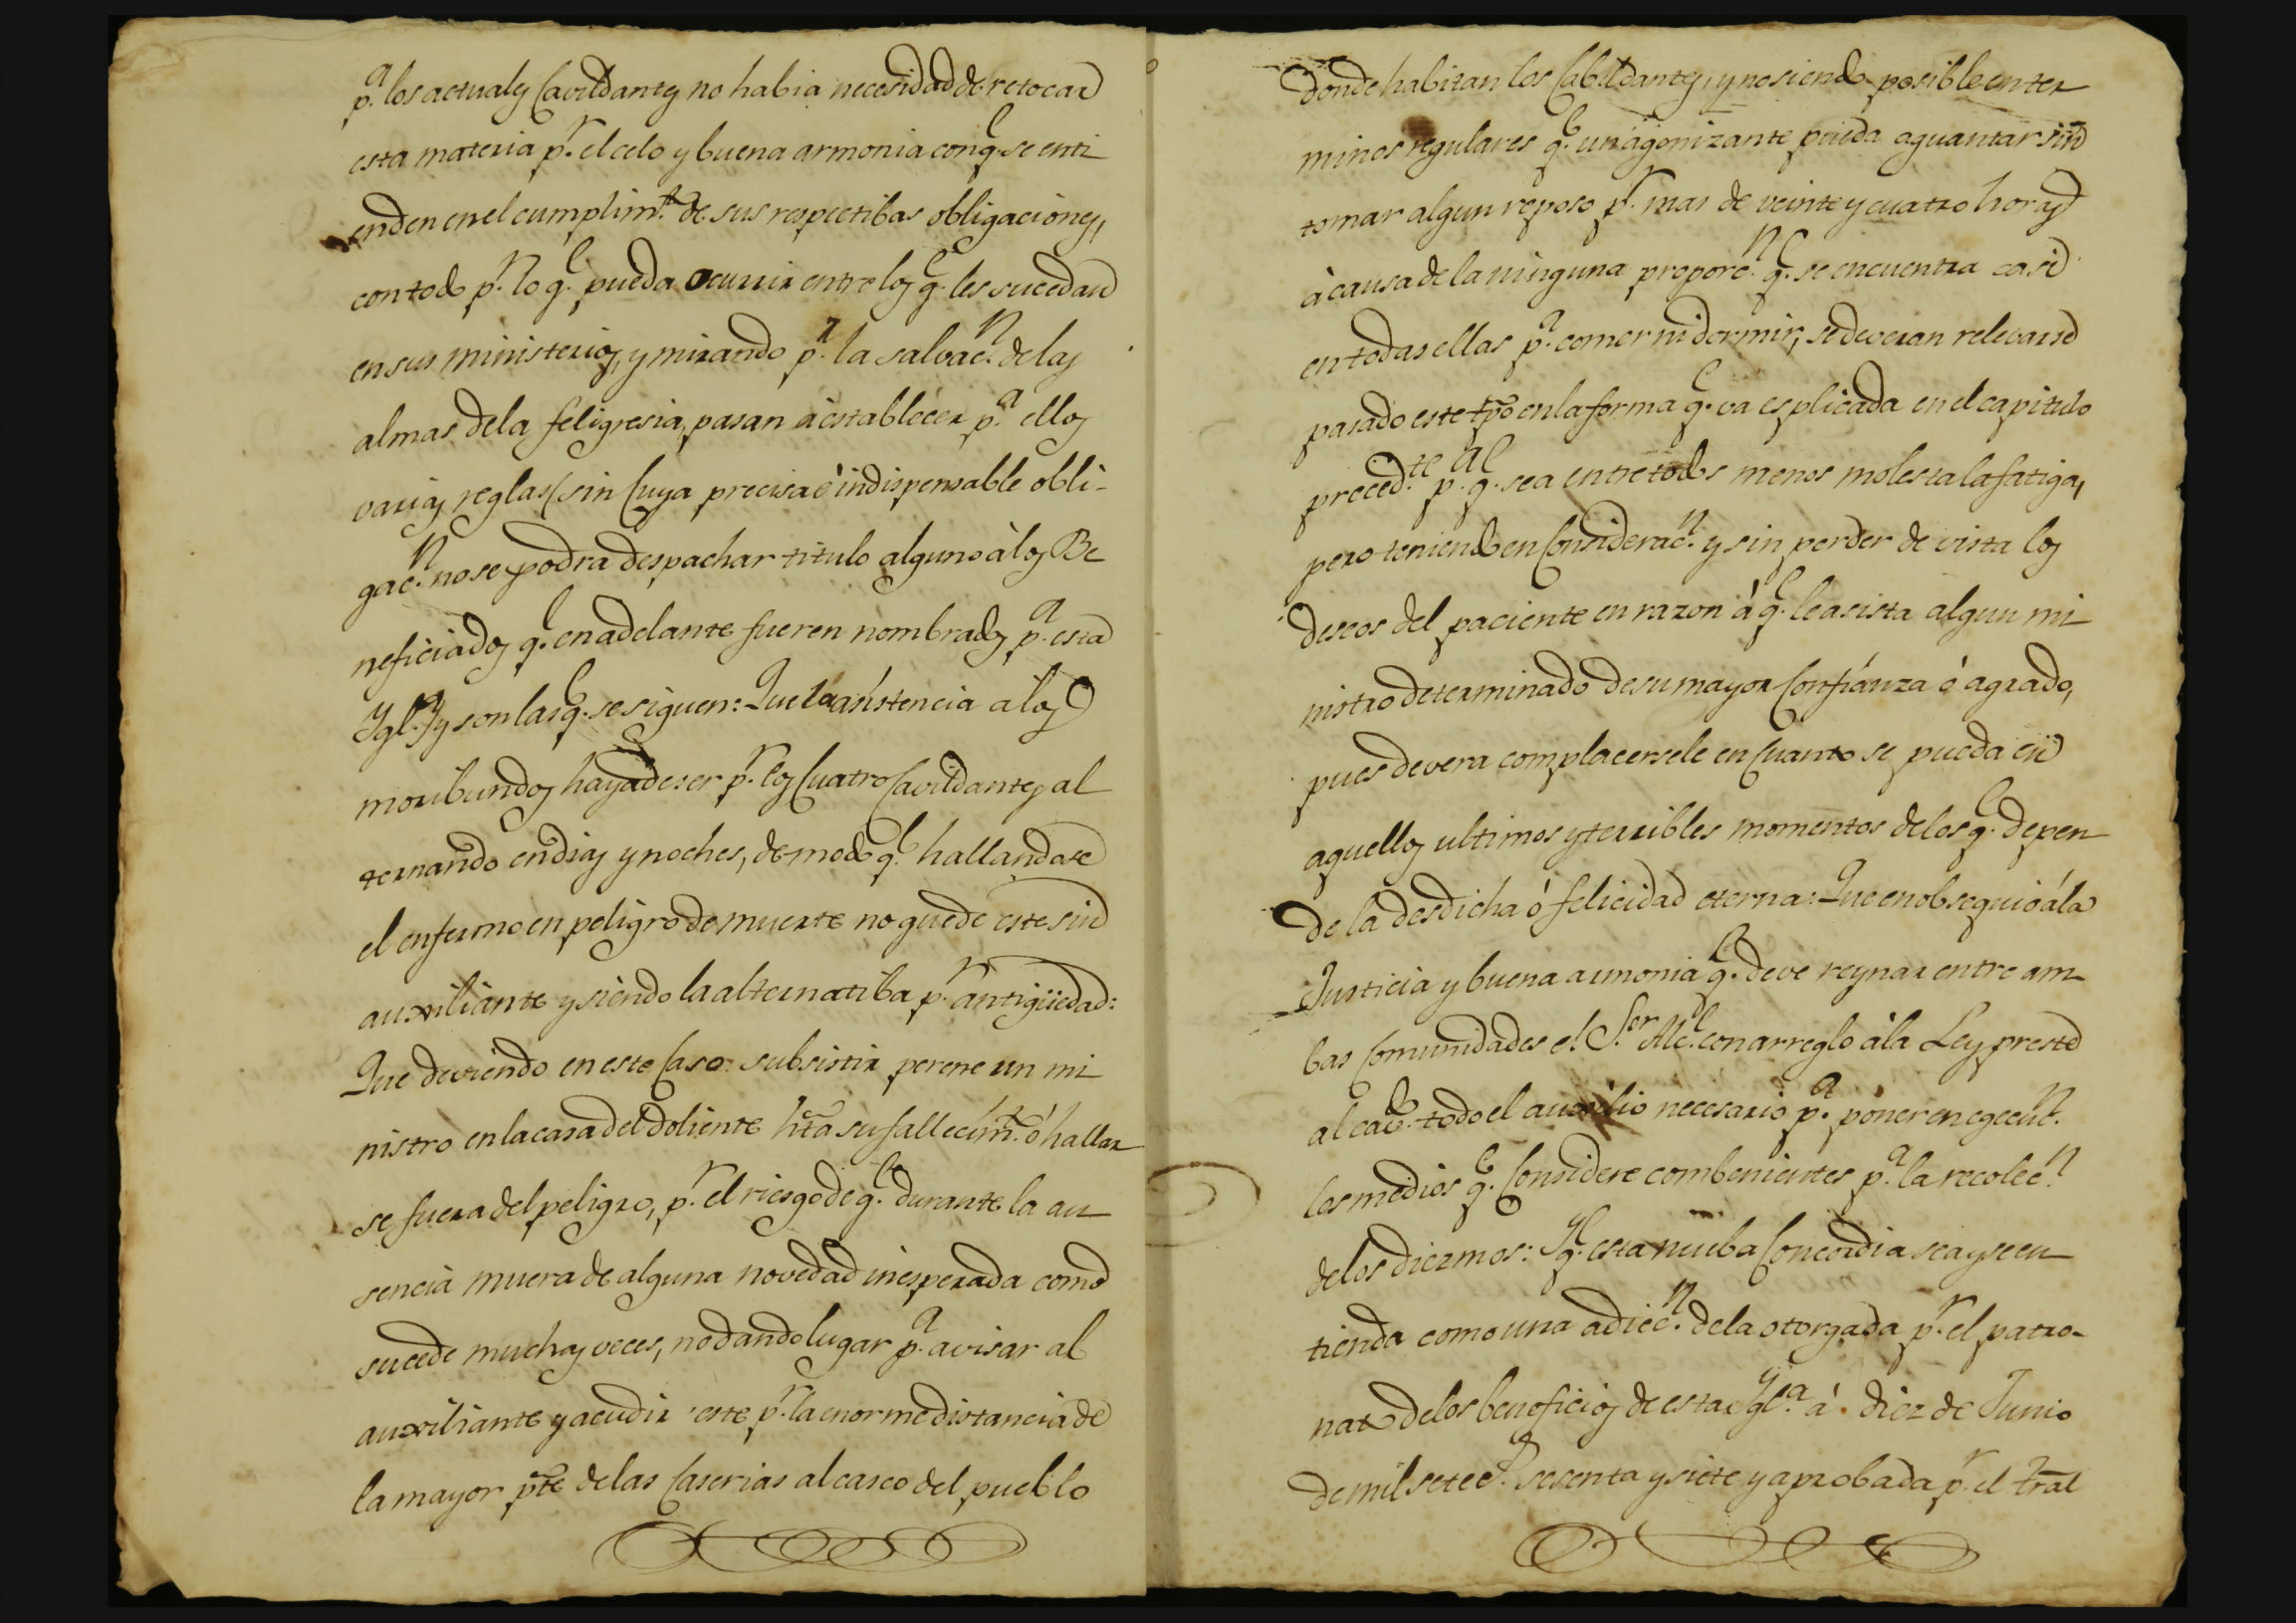 p.ª los actuales Cavildantes no habia necesidad de retocar
esta materia p.r el celo y buena armonia con q.e se enti
enden en el cumplim.to de sus respectibas obligaciones,
con todo p.r lo q.e pueda ocurrir entre los q.e les sucedan
en sus ministerios, y mirando p.r la salvac.n de las
almas de la feligresia, pasan á establecer p.ª ellos
varias reglas (sin Cuya precisa é indispensable obli-
gac.n no se podra despachar titulo alguno à los Be
neficiados q.e en adelante fueren nombrados p.ª esta
Ygl.ª) y son las q.e se siguen: Que la asistencia a los
moribundos haya de ser p.r los Cuatro Cavildantes al
ternando en dias y noches, de modo q.e hallandose
el enfermo en peligro de muerte no quede este sin
auxiliante y siendo la alternatiba p.r antigüedad:
Que deviendo en este Caso subsistir perene un mi
nistro en la casa del doliente hta su fallecim.to ó hallar
se fuera del peligro, p.r el riesgo de q.e durante la au
sencia muera de alguna novedad inesperada como
sucede muchas veces, no dando lugar p.ª avisar al
auxiliante y acudir este p.r la enorme distancia de
la mayor pte de las Caserias al casco del pueblo
donde habitan los Cabildantes, y no siendo posible en ter
minos regulares q.e un agonizante pueda aguantar sin
tomar algun reposo p.r mas de veinte y cuatro horas
à causa de la ninguna proporc.n q.e se encuentra casi
en todas ellas p.ª comer ni dormir, se deveran relevarse
pasado este tpo en la forma q.e va esplicada en el capitulo
preced.te p.ª q.e sea entre todos menos molesta la fatiga,
pero teniendo en Considerac.n y sin perder de vista los
deseos del paciente en razon á q.e le asista algun mi
nistro determinado de su mayor Confianza ó agrado,
pues devera complacersele en Cuanto se pueda en
aquellos ultimos y terribles momentos de los q.e depen
de la desdicha ó felicidad eterna: Que en obsequio á la
Justicia y buena armonia q.e deve reynar entre am
bas Comunidades el S.or Alc.l con arreglo à la Ley preste
al cav.do todo el auxilio necesario p.ª poner en egecuc.n
los medios q.e Considere combenientes p.ª la recolec.n
de los diezmos: Y q.e esta nueba Concordia sea y se en
tienda como una adicc.n de la otorgada p.r el patro-
nato de los beneficios de esta Ygl.ª á diez de Junio
de mil setec.s sesenta y siete y aprobada p.r el tral